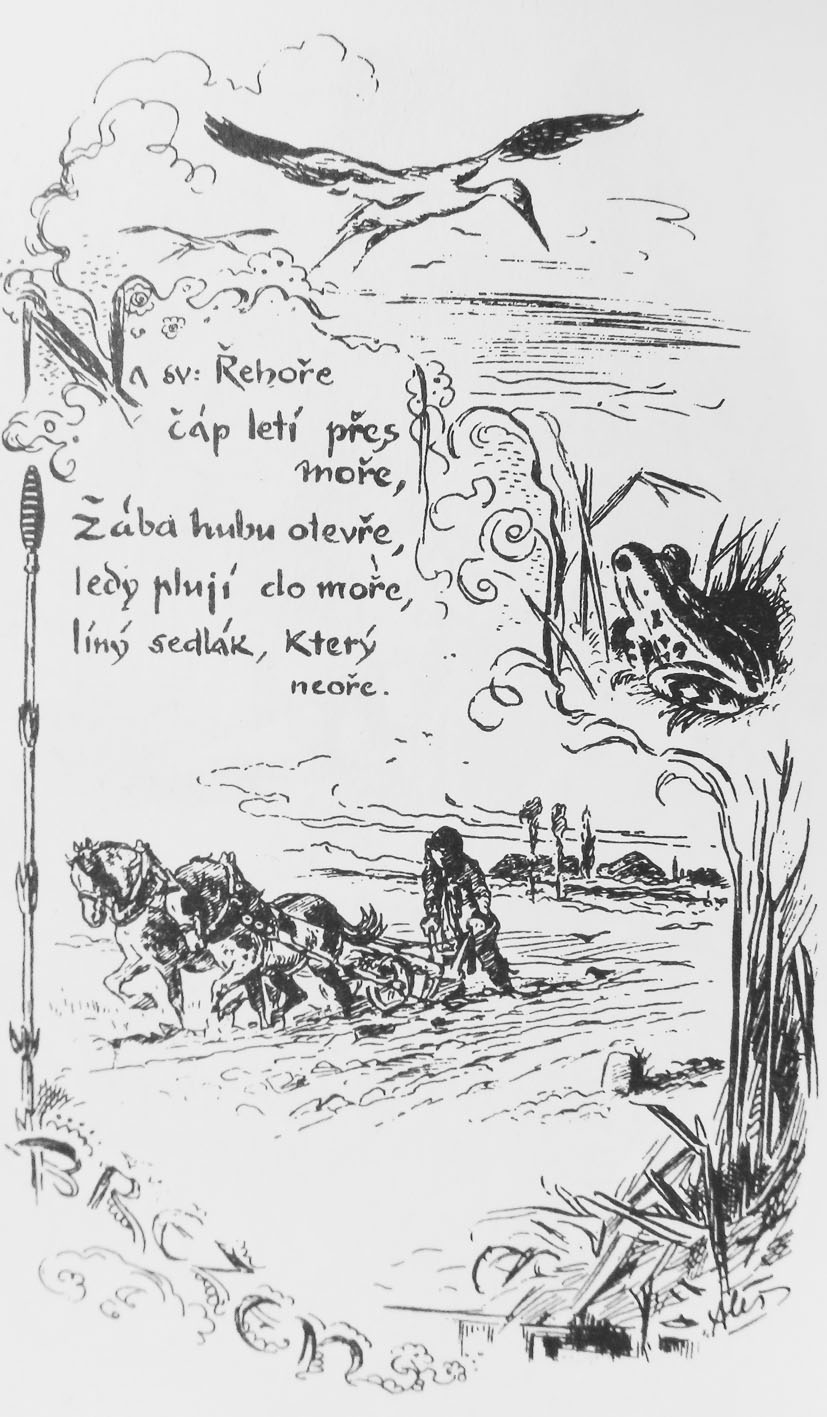 Na sv: Řehoře
čáp letí přes
moře,
Žába hubu otevře,
ledy plují do moře,
líný sedlák, který
neoře.
BŘEZEN
Aleš